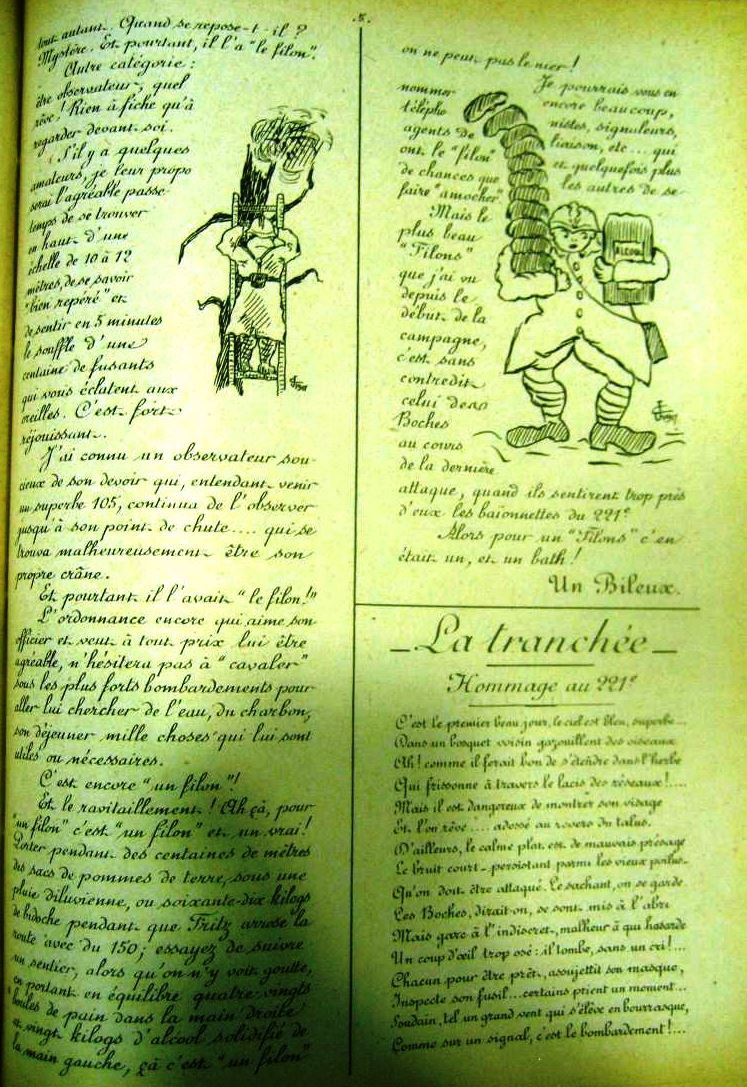 .5.
tout autant. Quand se repose-t-il ?
Mystère. Et pourtant, il l'a "le filon".
Autre catégorie :
être observateur, quel
rêve ! Rien à fiche qu'à
regarder devant soi.
S'il y a quelques
amateurs, je leur propo
serai l'agréable passe-
temps de se trouver
en haut d'une
échelle de 10 à 12
mètres, de se savoir
"bien repéré" et
de sentir en 5 minutes
le souffle d'une
centaine de fusants
qui vous éclatent aux
oreilles. C'est fort
réjouissant.
J'ai connu un observateur sou-
cieux de son devoir qui, entendant venir
un superbe 105, continua de l'observer
jusqu'à son point de chute.... qui se
trouva malheureusement être son
propre crâne.
Et pourtant il l'avait "le filon!"
L'ordonnance encore qui aime son
officier et veut à tout prix lui être
agréable, n'hésitera pas à "cavaler"
sous les plus forts bombardements pour
aller lui chercher de l'eau, du charbon,
son déjeuner mille choses qui lui sont
utiles ou nécessaires.
C'est encore "un filon"!
Et le ravitaillement ! Ah çà, pour
"un filon" c'est "un filon" et un vrai!
Porter pendant des centaines de mètres
des sacs de pommes de terre, sous une
pluie diluvienne, ou soixante-dix kilogs
de bidoche pendant que Fritz arrose la
route avec du 150 ; essayez de suivre
un sentier, alors qu'on n'y voit goutte,
en portant en équilibre quatre vingts
boules de pain dans la main droite
et vingt kilogs d'alcool solidifié de
la main gauche, çà c'est "un filon"
on ne peut pas le nier !
Je pourrais vous en
nommer encore beaucoup,
télépho nistes, signaleurs,
agents de liaison, etc... qui
ont le "filon" et quelquefois plus
de chances que les autres de se
faire "amocher"
Mais le
plus beau
"Filons"
que j'ai vu
depuis le
début de la
campagne,
c'est sans
contredit
celui des
Boches
au cours
de la dernière
attaque, quand ils sentirent trop près
d'eux les baïonnettes du 221e
Alors pour un "Filons" c'en
était un, et un bath !
Un Bileux.
ALCOOL
La tranchée
Hommage au 221e
C'est le premier beau jour, le ciel est bleu, superbe...
Dans un bosquet voisin gazouillent des oiseaux
Ah ! comme il ferait bon de s'étendre dans l'herbe
Qui frissonne à travers le lacis des réseaux !....
Mais il est dangereux de montrer son visage
Et l'on rêve .... adossé au revers du talus.
D'ailleurs, le calme plat est de mauvais présage
Le bruit court - persistant parmi les vieux poilus -
Qu'on doit être attaqué. Le sachant, on se garde
Les Boches, dirait-on, se sont mis à l'abri
Mais gare à l'indiscret, malheur à qui hasarde
Un coup d'œil trop osé : il tombe, sans un cri !...
Chacun pour être prêt, assujettit son masque,
Inspecte son fusil... certains prient un moment...
Soudain, tel un grand vent qui s'élève en bourrasque,
Comme sur un signal, c'est le bombardement !...